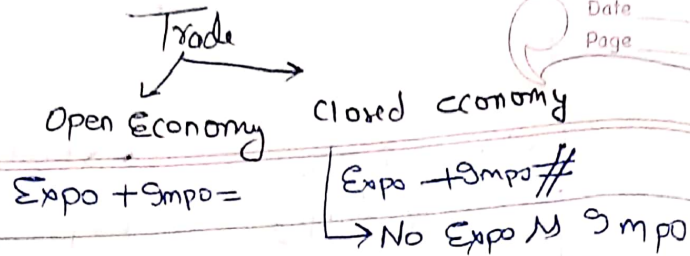 Date
Page
Trade
Open Economy
Closed economy
Expo + Impo =
Expo + Impo #
No Expo N Impo